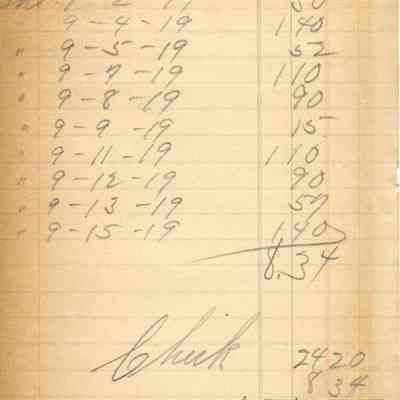 9-4-19 140
" 9-5-19 52
" 9-7-19 110
" 9-8-19 90
" 9-9-19 15
" 9-11-19 110
" 9-12-19 90
" 9-13-19 57
" 9-15-19 140
8.34
Check 2420
834